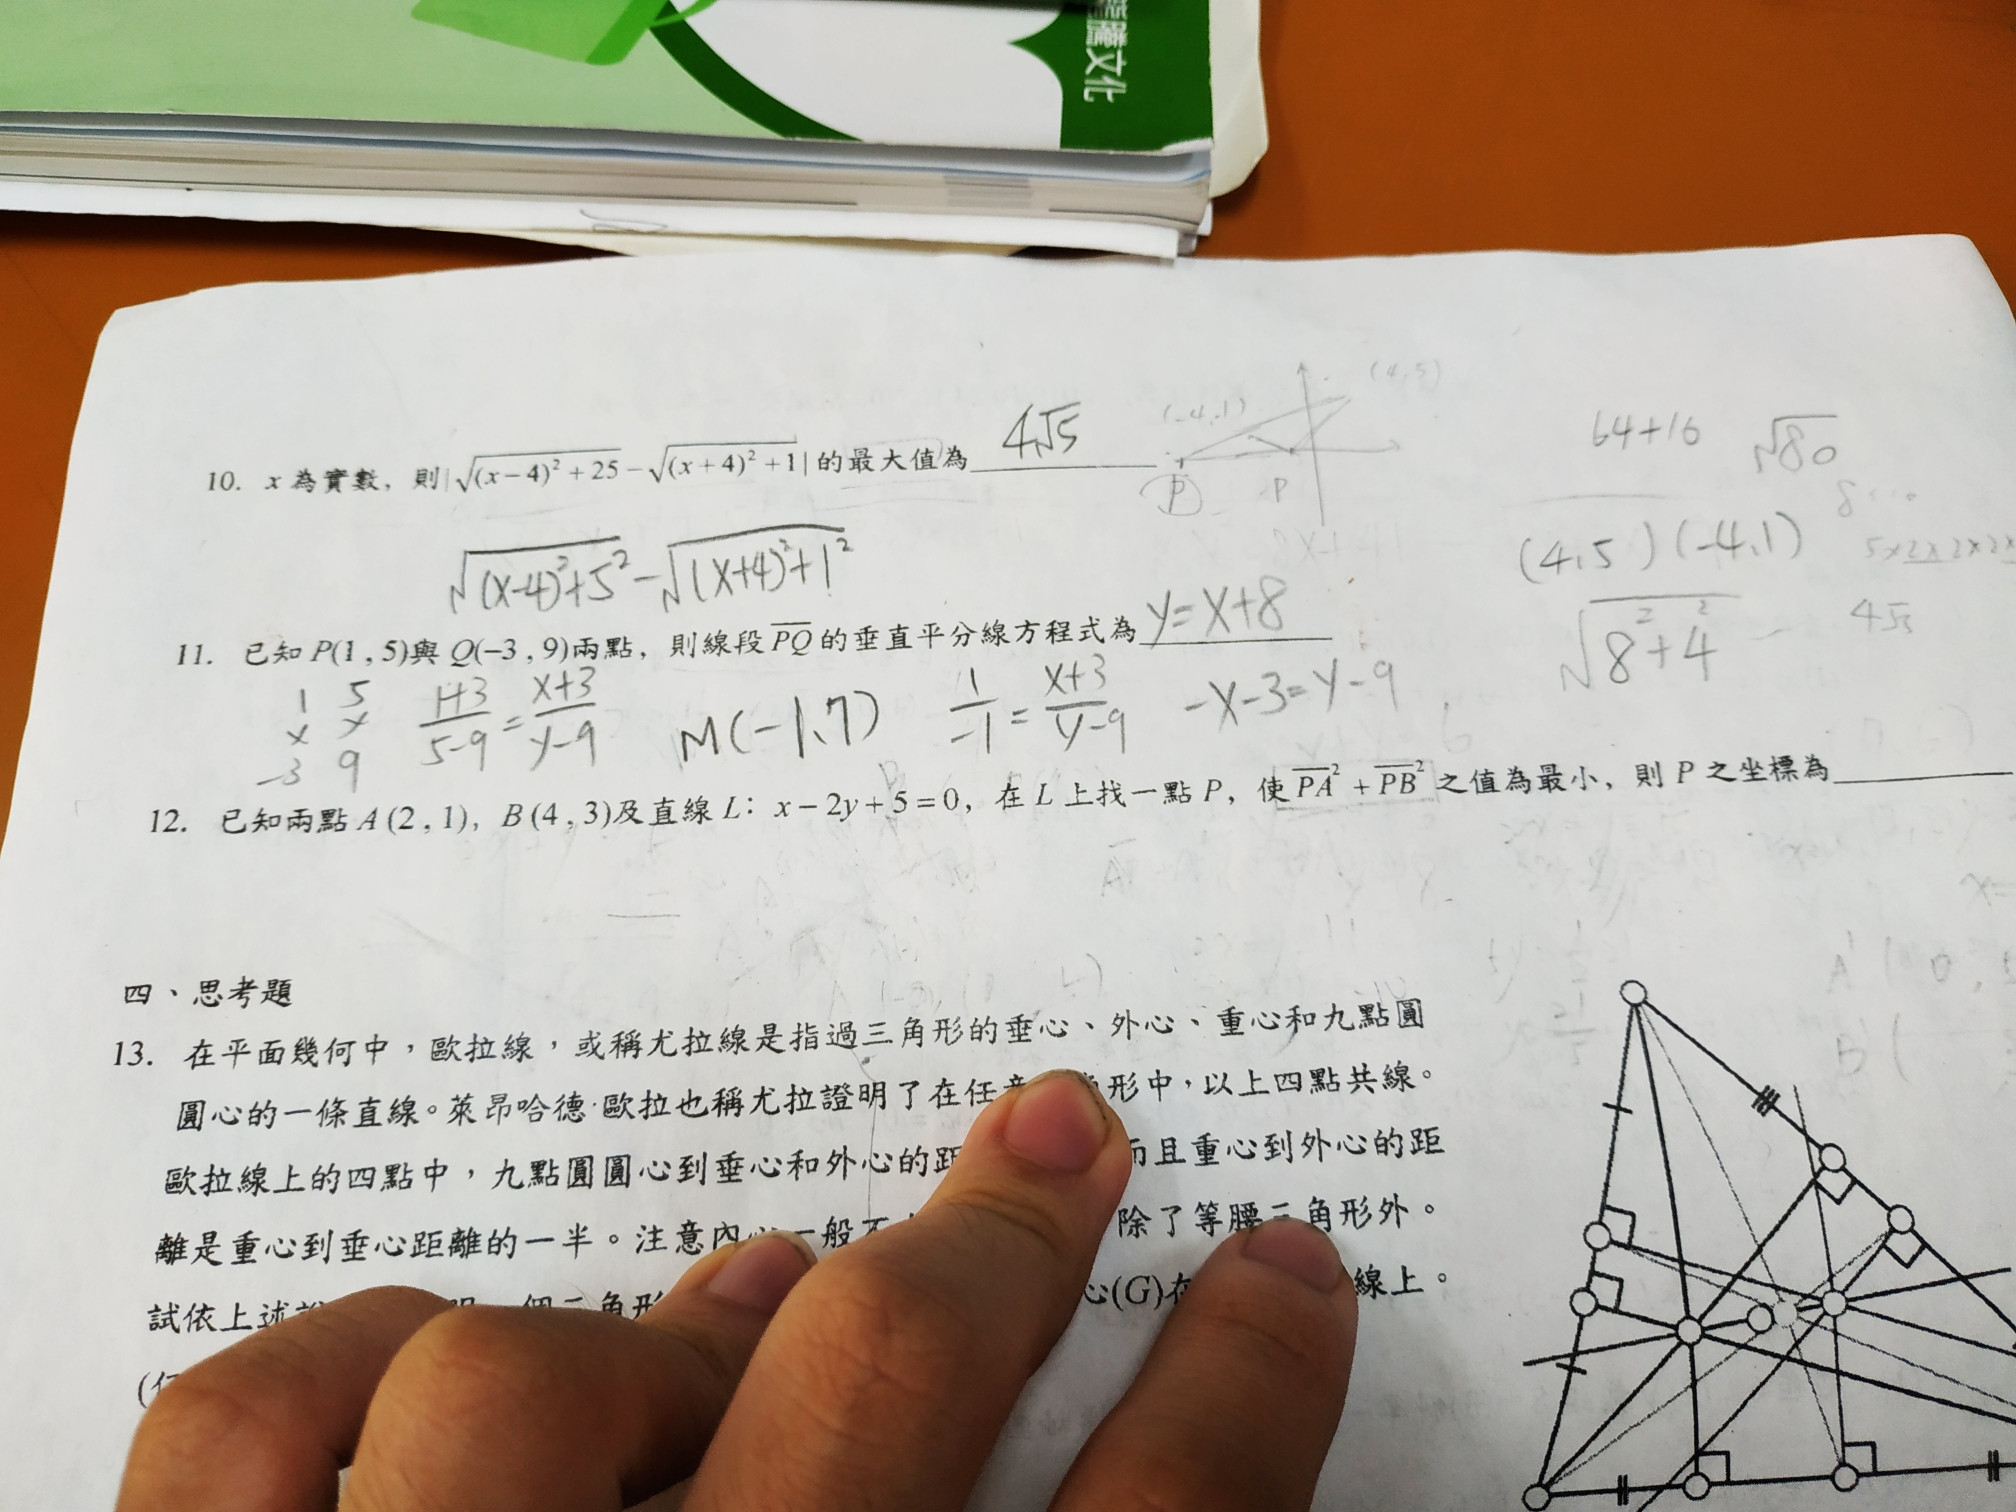 騰文化
(4,5)
(-4,1)
64+16
√80
10. x 為實數，則|√((x−4)²+25) − √((x+4)²+1)| 的最大值為 4√5
P
P
(4,5) (-4,1)
√((x-4)²+5²) - √((x+4)²+1²)
√(8²+4²)
4√5
11. 已知 P(1, 5)與 Q(−3, 9)兩點，則線段 PQ 的垂直平分線方程式為 y=x+8
1 5
x x
-3 9
(1+3)/(5-9) = (x+3)/(y-9)
M(-1,7)
1/-1 = (x+3)/(y-9)
-x-3=y-9
12. 已知兩點 A (2, 1)，B (4, 3)及直線 L：x − 2y + 5 = 0，在 L 上找一點 P，使 PA² + PB² 之值為最小，則 P 之坐標為
四、思考題
13. 在平面幾何中，歐拉線，或稱尤拉線是指過三角形的垂心、外心、重心和九點圓
圓心的一條直線。萊昂哈德·歐拉也稱尤拉證明了在任 形中，以上四點共線。
歐拉線上的四點中，九點圓圓心到垂心和外心的距 而且重心到外心的距
離是重心到垂心距離的一半。注意內心一般不 除了等腰三角形外。
試依上述 個三角形 心(G)在 線上。